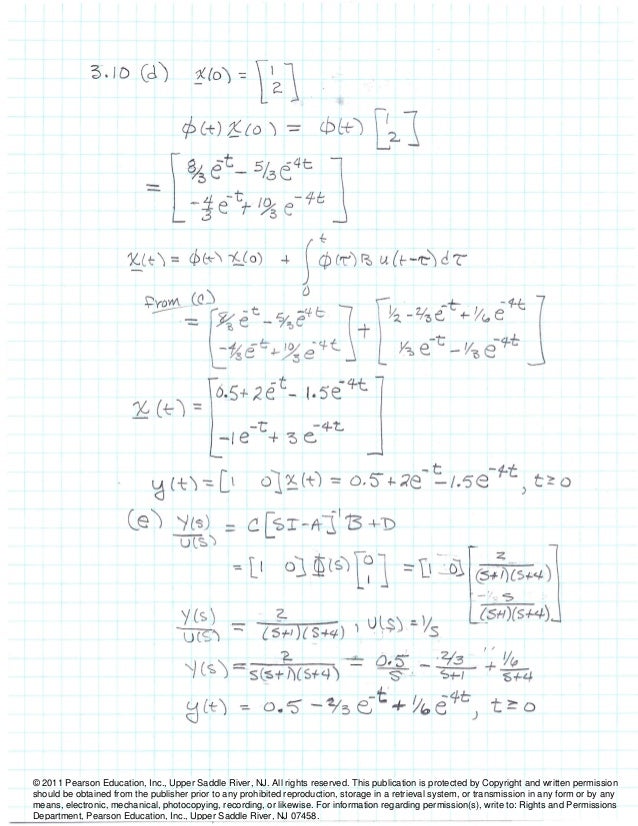 3.10 (d) x(0) = [1 2]
ϕ(t) x(0) = ϕ(t) [1 2]
= [8/3 e^-t - 5/3 e^-4t
-4/3 e^-t + 10/3 e^-4t]
x(t) = ϕ(t) x(0) + ∫_0^t ϕ(τ) B u(t-τ) dτ
From (c)
= [8/3 e^-t - 5/3 e^-4t] + [1/2 - 2/3 e^-t + 1/6 e^-4t]
[-4/3 e^-t + 10/3 e^-4t] [1/3 e^-t - 1/3 e^-4t]
x(t) = [0.5 + 2e^-t - 1.5e^-4t
-1e^-t + 3e^-4t]
y(t) = [1 0] x(t) = 0.5 + 2e^-t - 1.5e^-4t, t≥0
(e) Y(s)/U(s) = C[SI-A]^-1 B + D
= [1 0] Φ(s) [0 1] = [1 0] [2/((s+1)(s+4))
s/((s+1)(s+4))]
Y(s)/U(s) = 2/((s+1)(s+4)), U(s) = 1/s
Y(s) = 2/(s(s+1)(s+4)) = 0.5/s - 2/3/(s+1) + 1/6/(s+4)
y(t) = 0.5 - 2/3 e^-t + 1/6 e^-4t, t≥0
© 2011 Pearson Education, Inc., Upper Saddle River, NJ. All rights reserved. This publication is protected by Copyright and written permission
should be obtained from the publisher prior to any prohibited reproduction, storage in a retrieval system, or transmission in any form or by any
means, electronic, mechanical, photocopying, recording, or likewise. For information regarding permission(s), write to: Rights and Permissions
Department, Pearson Education, Inc., Upper Saddle River, NJ 07458.